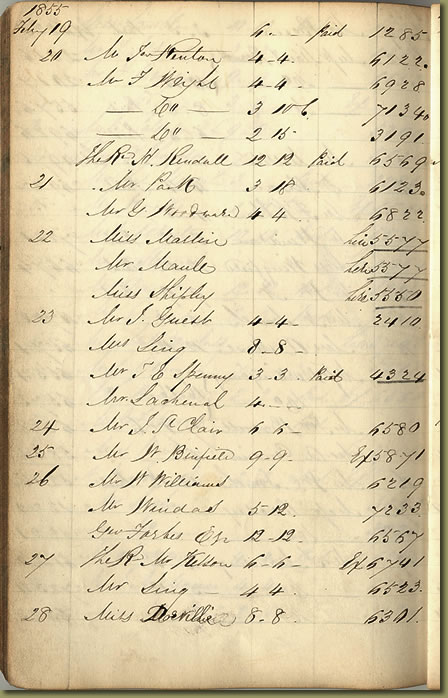 1855
Feby 19 6 - Paid 1285
20 Mr Jas Kenton 4-4- 6122.
Mr F Wright 4-4- 6928
— Do — 3 10 6 7134
— Do — 2 15 - 3191
The Rd H. Kendall 12 12 Paid 6569
21 Mr Park 3 18 6123.
Mr G Woodward 4 4 6822
22 Miss Martin hire 5577
Mr Maule hire 5577
Miss Shipley hire 5550
23 Mr J. Guest 4-4- 2410
Mrs Sing 8-8-
Mr T E Spenny 3-3 Paid 4324
Mr Lachenal 4-
24 Mr J. St Clair 6 6- 6580
25 Mr W Binfield 9-9- Ex 5871
26 Mr W Williams 6219
Mr Windas 5-12 7233
Geo Forbes Esr 12-12- 6567
27 The Rd Mr 6-6- Ex 6741
Mr Sing 4 4. 6523.
28 Miss 8-8. 6301.